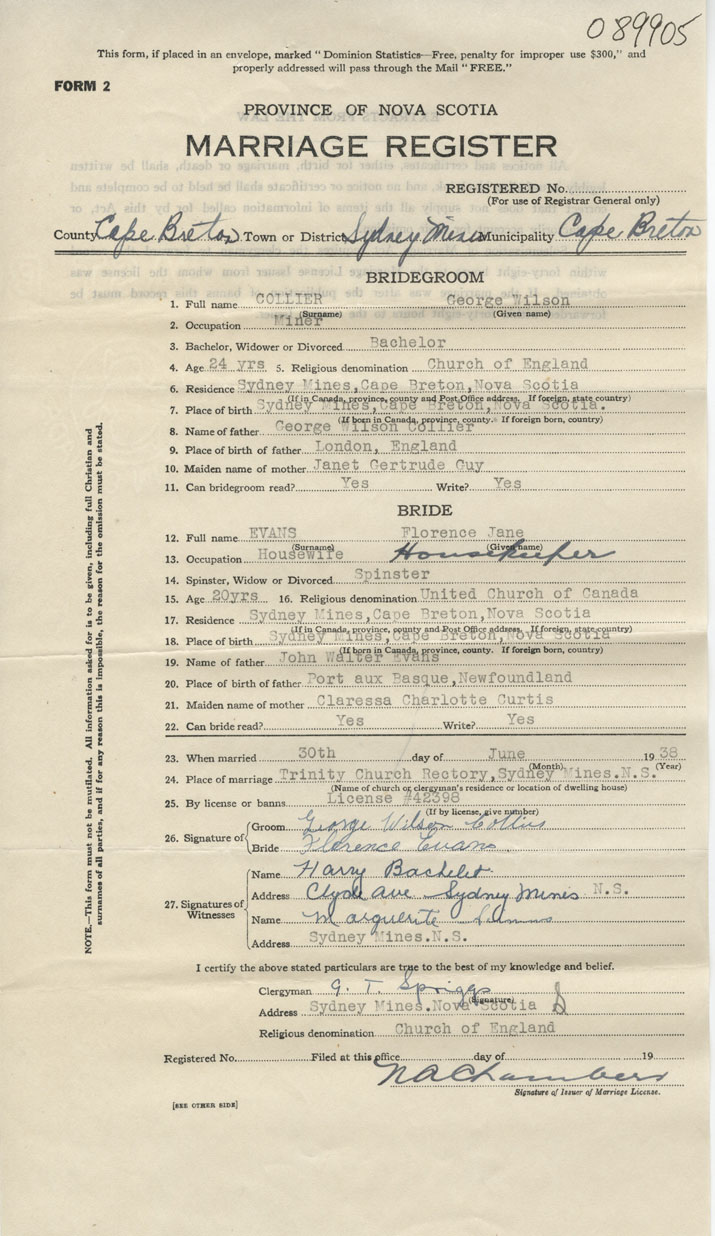 089905
This form, if placed in an envelope, marked "Dominion Statistics—Free, penalty for improper use $300," and
properly addressed will pass through the Mail "FREE."
FORM 2
PROVINCE OF NOVA SCOTIA
MARRIAGE REGISTER
REGISTERED No.
(For use of Registrar General only)
County Cape Breton Town or District Sydney Mines Municipality Cape Breton
BRIDEGROOM
1. Full name COLLIER George Wilson
(Surname) (Given name)
2. Occupation Miner
3. Bachelor, Widower or Divorced Bachelor
4. Age 24 yrs 5. Religious denomination Church of England
6. Residence Sydney Mines,Cape Breton,Nova Scotia
(If in Canada, province, county and Post Office address. If foreign, state country)
7. Place of birth Sydney Mines,Cape Breton,Nova Scotia.
(If born in Canada, province, county. If foreign born, country)
8. Name of father George Wilson Collier
9. Place of birth of father London, England
10. Maiden name of mother Janet Gertrude Guy
11. Can bridegroom read? Yes Write? Yes
BRIDE
12. Full name EVANS Florence Jane
(Surname) (Given name)
13. Occupation Housewife Housekeeper
14. Spinster, Widow or Divorced Spinster
15. Age 20yrs 16. Religious denomination United Church of Canada
17. Residence Sydney Mines,Cape Breton,Nova Scotia
(If in Canada, province, county and Post Office address. If foreign, state country)
18. Place of birth Sydney Mines,Cape Breton,Nova Scotia
(If born in Canada, province, county. If foreign born, country)
19. Name of father John Walter Evans
20. Place of birth of father Port aux Basque,Newfoundland
21. Maiden name of mother Claressa Charlotte Curtis
22. Can bride read? Yes Write? Yes
23. When married 30th day of June 1938
(Month) (Year)
24. Place of marriage Trinity Church Rectory,Sydney Mines.N.S.
(Name of church or clergyman's residence or location of dwelling house)
25. By license or banns License #42398
(If by license, give number)
26. Signature of Groom George Wilson Collier
Bride Florence Evans
27. Signatures of Witnesses Name Harry Bachelet
Address Clyde Ave Sydney Mines N.S.
Name Marguerite
Address Sydney Mines.N.S.
I certify the above stated particulars are true to the best of my knowledge and belief.
Clergyman G. T. Spriggs
(Signature)
Address Sydney Mines.Nova Scotia
Religious denomination Church of England
Registered No. Filed at this office day of 19
NA Chambers
Signature of Issuer of Marriage License.
[SEE OTHER SIDE]
NOTE.—This form must not be mutilated. All information asked for is to be given, including full Christian and
surnames of all parties, and if for any reason this is impossible, the reason for the omission must be stated.